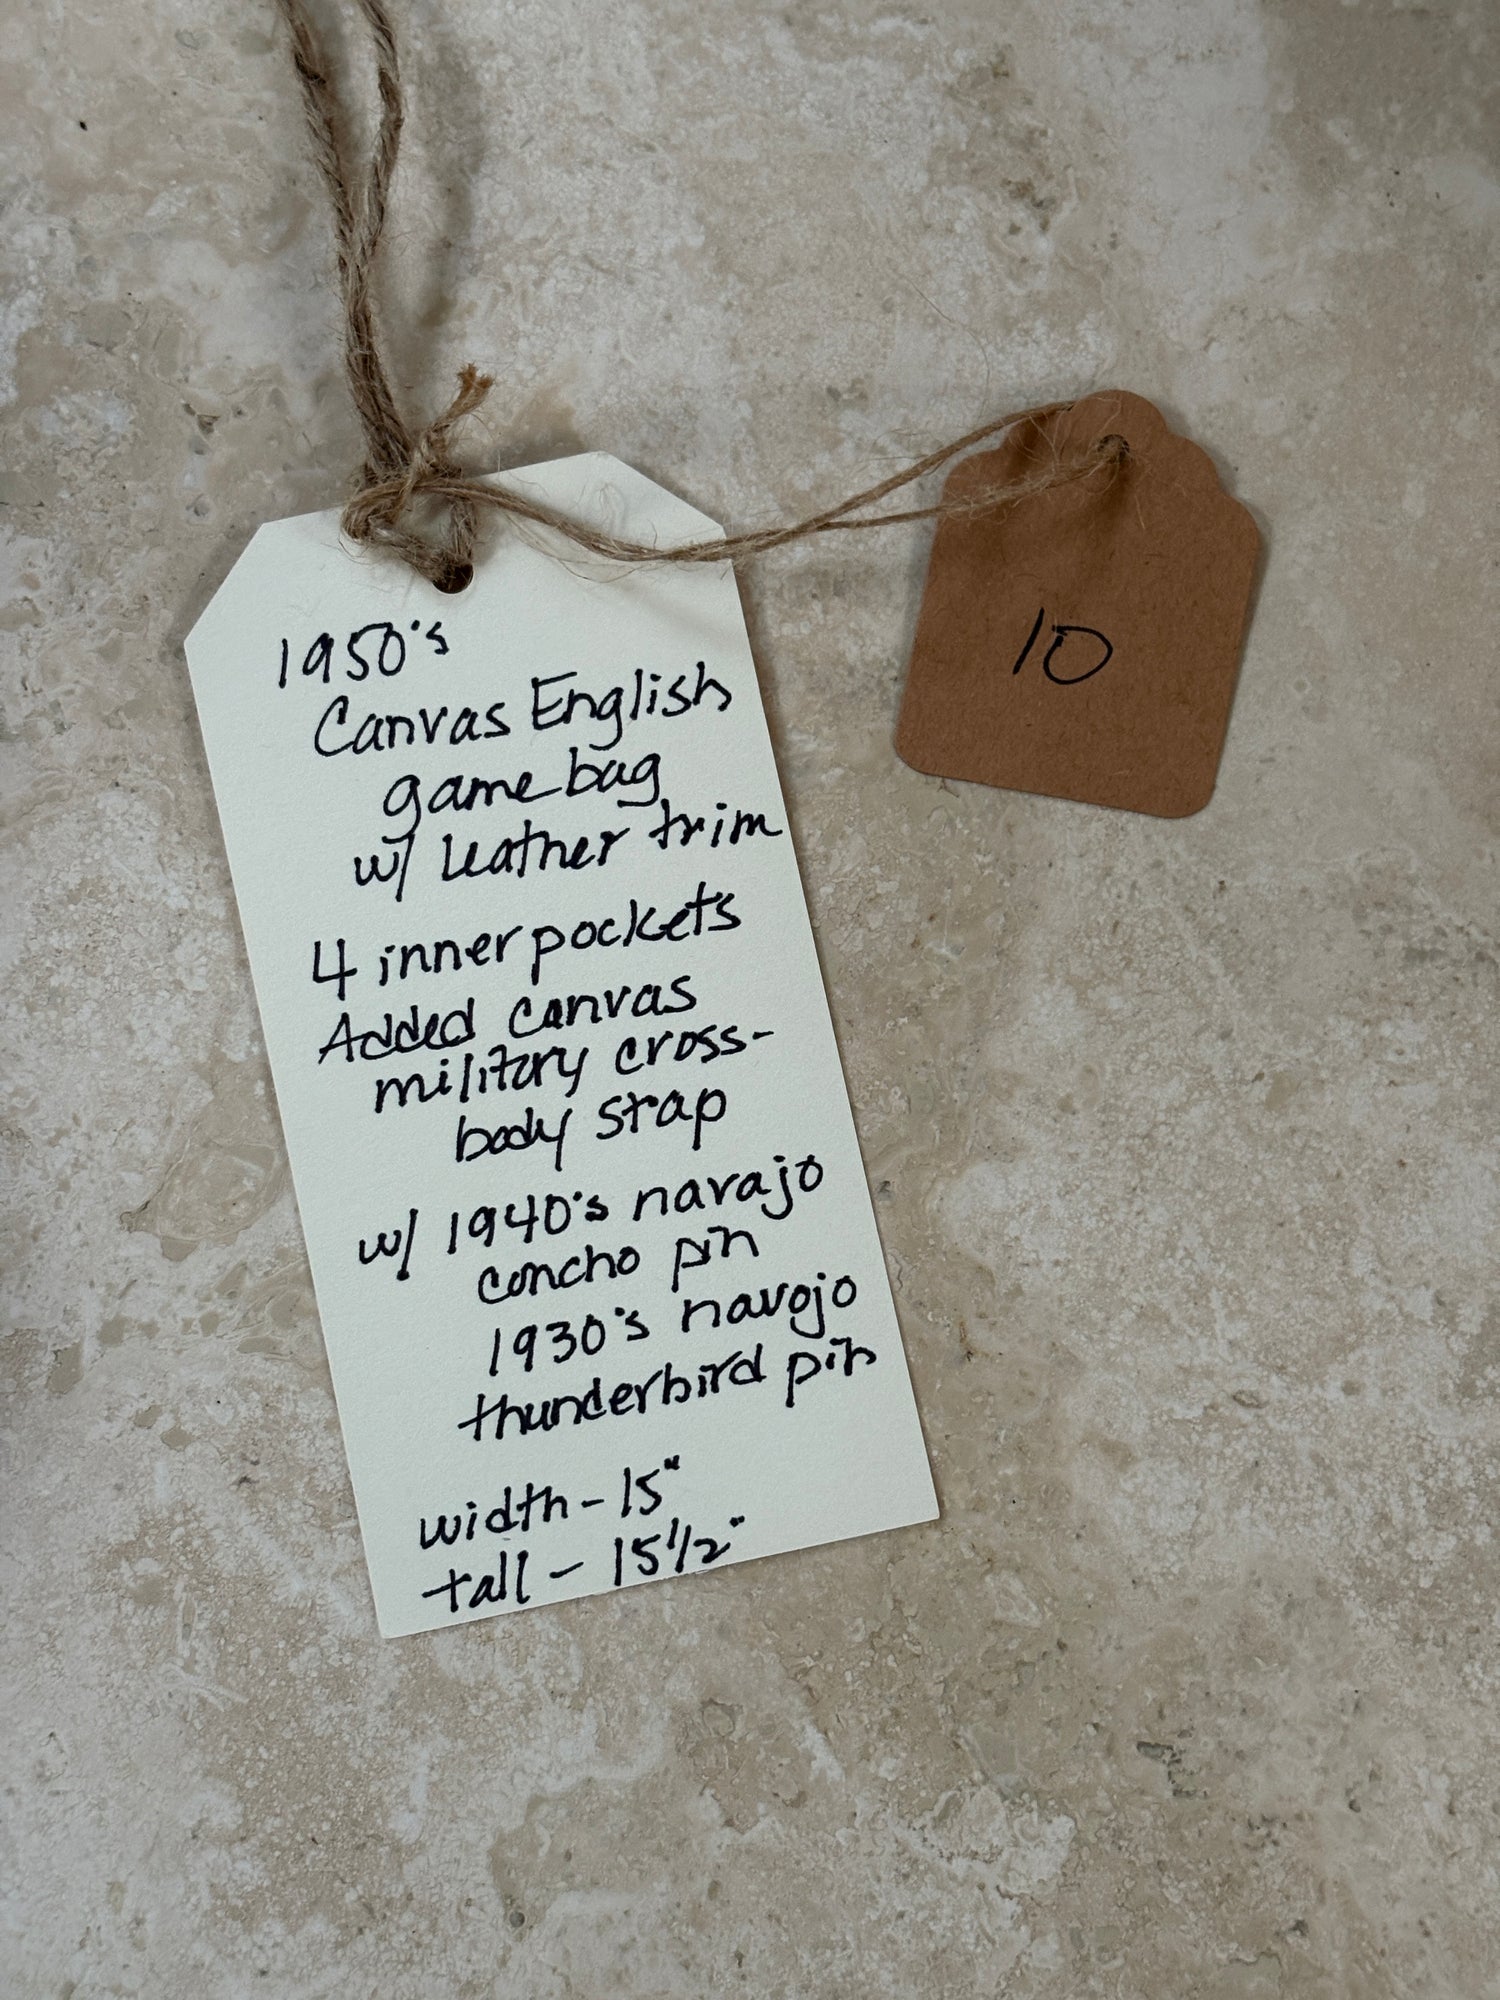 1950's
Canvas English
game bag
w/ leather trim
4 inner pockets
Added canvas
military cross-
body strap
w/ 1940's navajo
concho pin
1930's navajo
thunderbird pin
width - 15"
tall - 15 1/2"
10